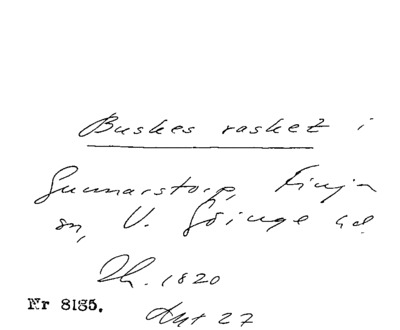 Buskes rasket i
Gunnarstorp, Finja
sn, V. Göinge hd.
Dh. 1820
Nr 8185.
Ant 27